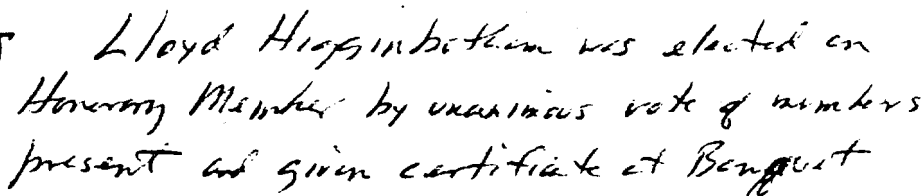 Lloyd Higginbotham was elected an
Honorary Member by unanimous vote of members
present and given certificate at Banquet